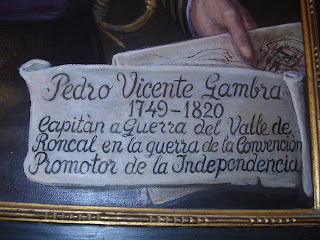 Pedro Vicente Gambra
1749-1820
Capitàn a Guerra del Valle de
Roncal en la guerra de la Convención
Promotor de la Independencia